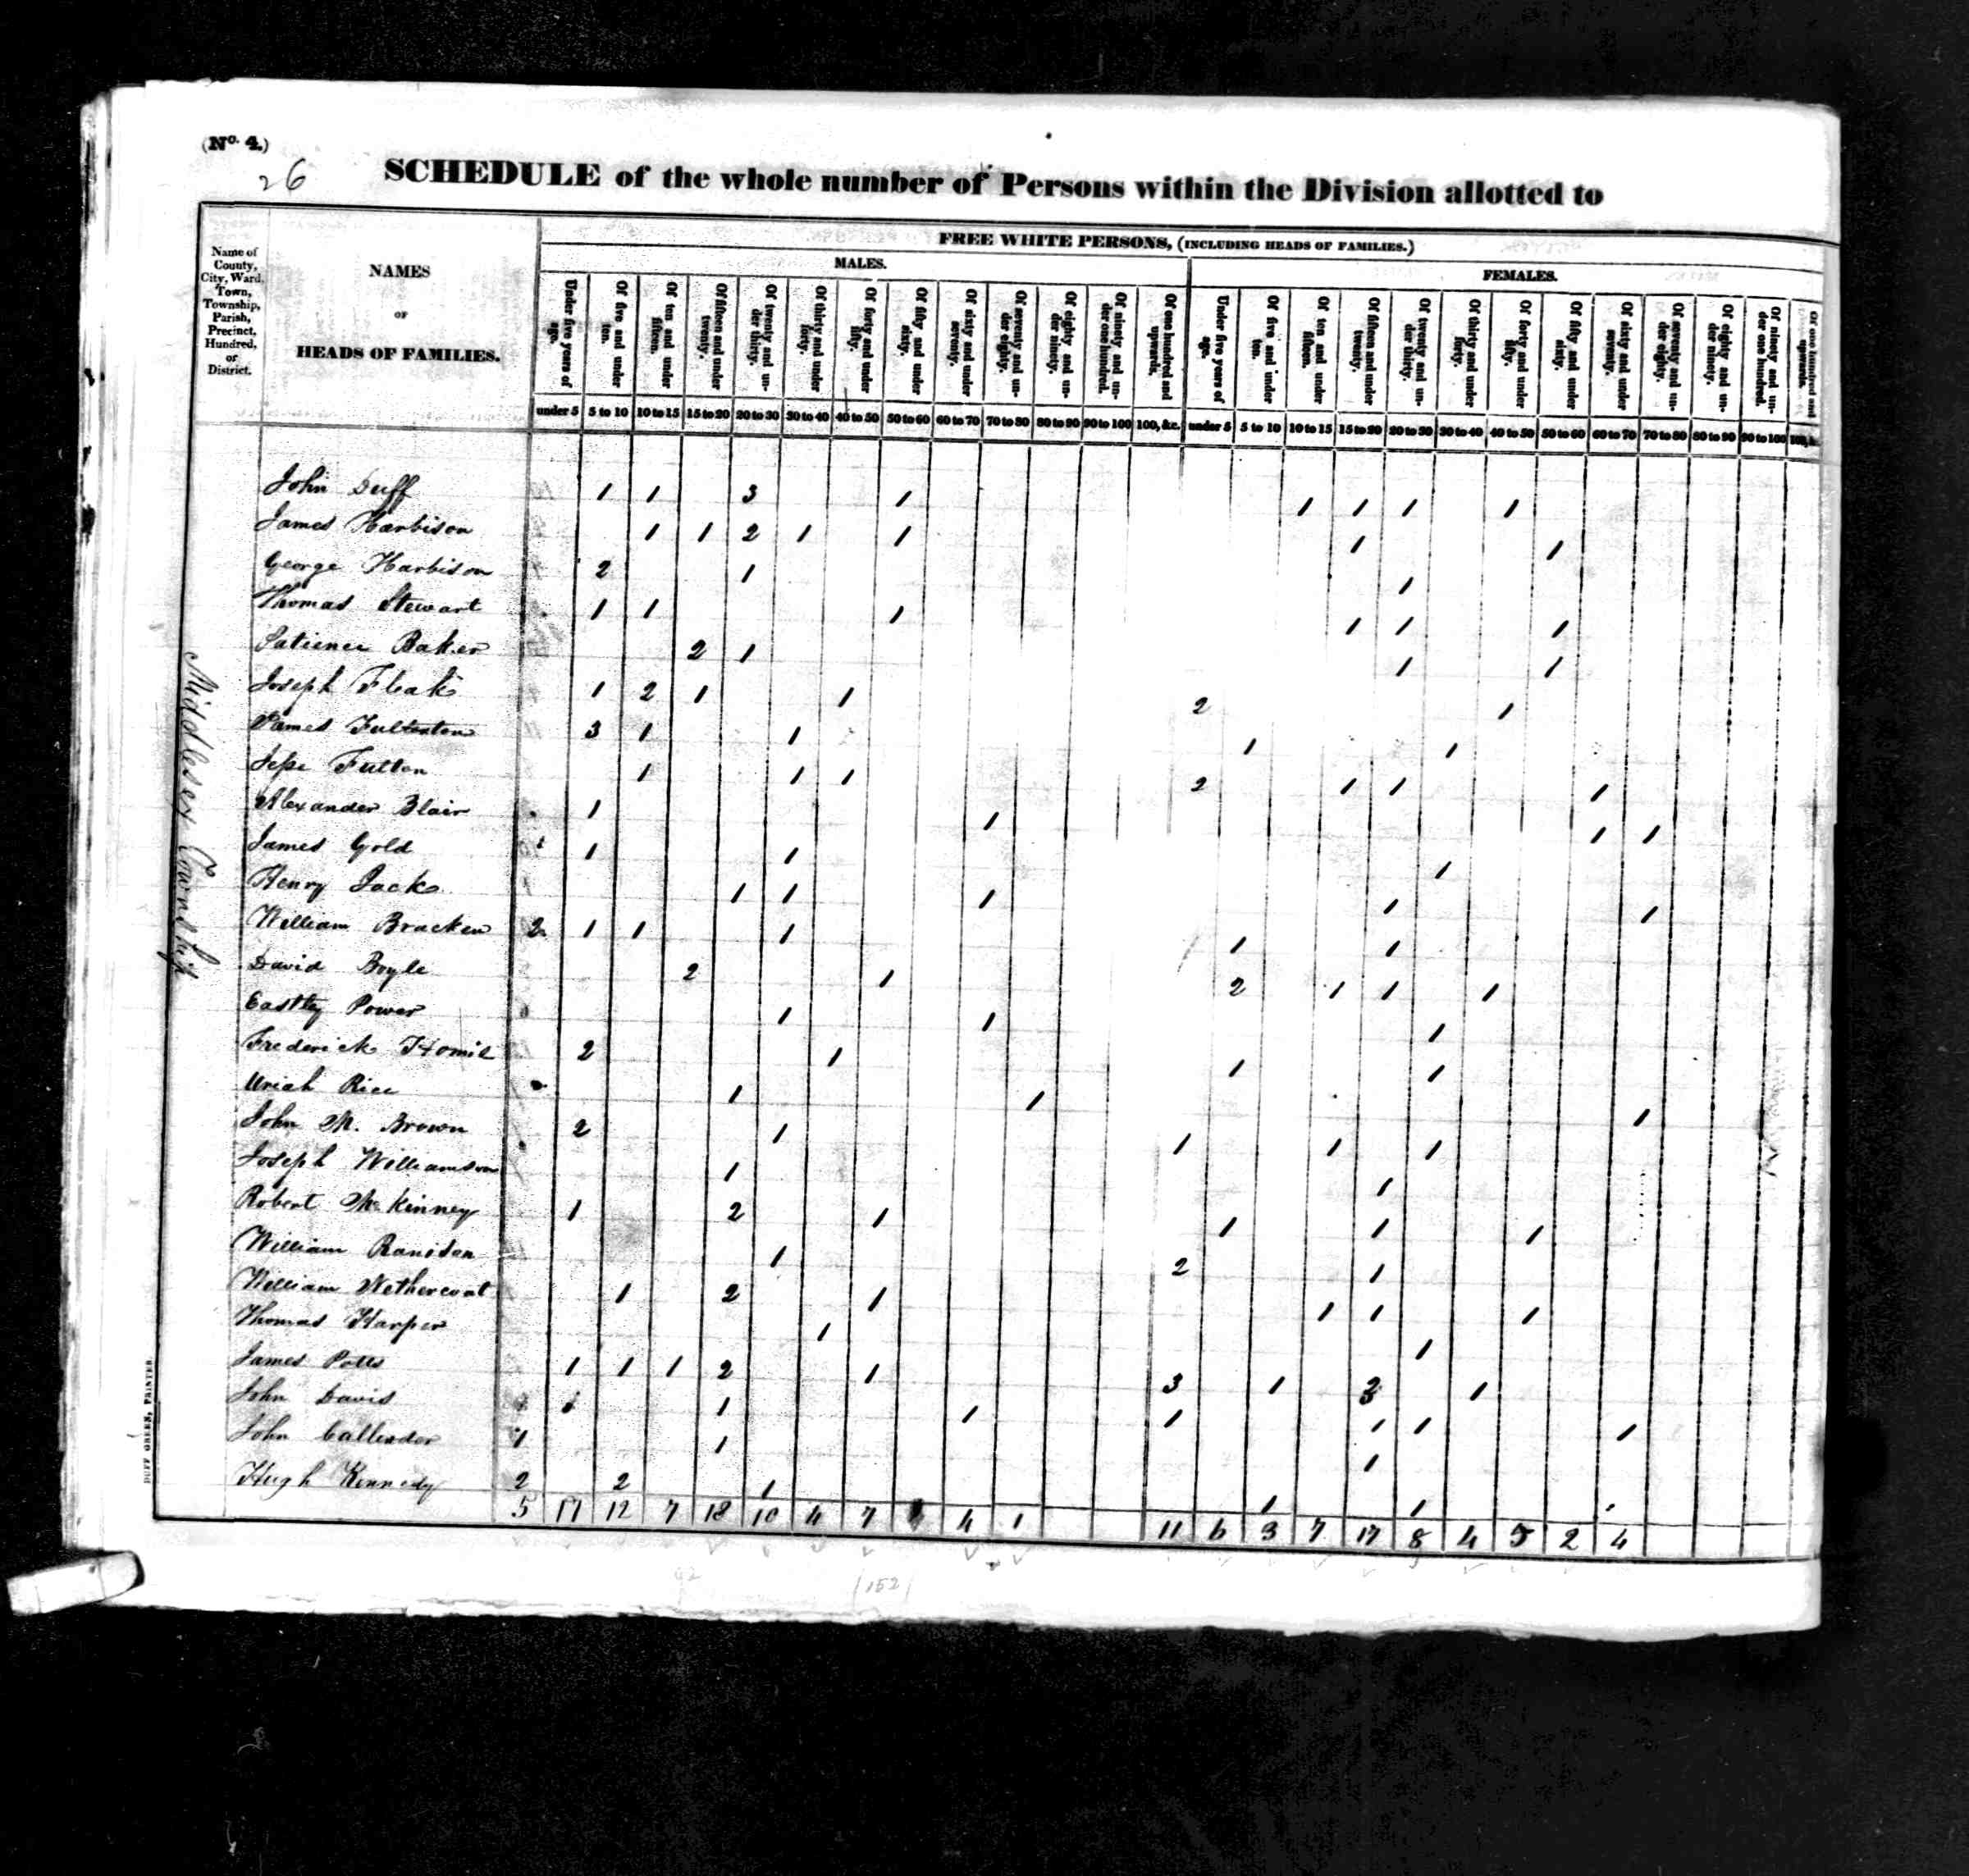 (No. 4.)
26
SCHEDULE of the whole number of Persons within the Division allotted to
FREE WHITE PERSONS, (INCLUDING HEADS OF FAMILIES.)
MALES. FEMALES.
Name of County, City, Ward, Town, Township, Parish, Precinct, Hundred, or District.
NAMES
OF
HEADS OF FAMILIES.
Under five years of age. Of five and under ten. Of ten and under fifteen. Of fifteen and under twenty. Of twenty and under thirty. Of thirty and under forty. Of forty and under fifty. Of fifty and under sixty. Of sixty and under seventy. Of seventy and under eighty. Of eighty and under ninety. Of ninety and under one hundred. Of one hundred and upwards. Under five years of age. Of five and under ten. Of ten and under fifteen. Of fifteen and under twenty. Of twenty and under thirty. Of thirty and under forty. Of forty and under fifty. Of fifty and under sixty. Of sixty and under seventy. Of seventy and under eighty. Of eighty and under ninety. Of ninety and under one hundred. Of one hundred and upwards.
under 5 5 to 10 10 to 15 15 to 20 20 to 30 30 to 40 40 to 50 50 to 60 60 to 70 70 to 80 80 to 90 90 to 100 100, &c. under 5 5 to 10 10 to 15 15 to 20 20 to 30 30 to 40 40 to 50 50 to 60 60 to 70 70 to 80 80 to 90 90 to 100
Middlesex Township
John Duff 1 1 3 1 1 1 1 1
James Harbison 1 1 2 1 1 1 1
George Harbison 2 1 1
Thomas Stewart 1 1 1 1 1 1
Patience Baker 2 1 1 1
Joseph 1 2 1 1 2 1
James 3 1 1 1 1
Jesse Fulton 1 1 1 2 1 1 1
Alexander Blair 1 1 1 1
James Gold 1 1 1
Henry Jack 1 1 1 1 1
William Bracken 2 1 1 1 1 1 1
David Boyle 2 1 2 1 1 1
Power 1 1 1
Frederick 2 1 1 1
Uriah Rice 1 1 1
John M. Brown 2 1 1 1 1
Joseph Williamson 1 1
Robert McKinney 1 2 1 1 1 1
William 1 2 1
William Nethercoat 1 2 1 1 1 1
Thomas Harper 1 1
James Potts 1 1 1 2 1 3 1 2 1
John Davis 1 1 1 1 1 1 1
John Callender 1 1 1
Hugh Kennedy 2 2 1 1 1
5 17 12 7 18 10 4 7 4 1 11 6 3 7 17 8 4 5 2 4
DUFF GREEN, PRINTER.
152